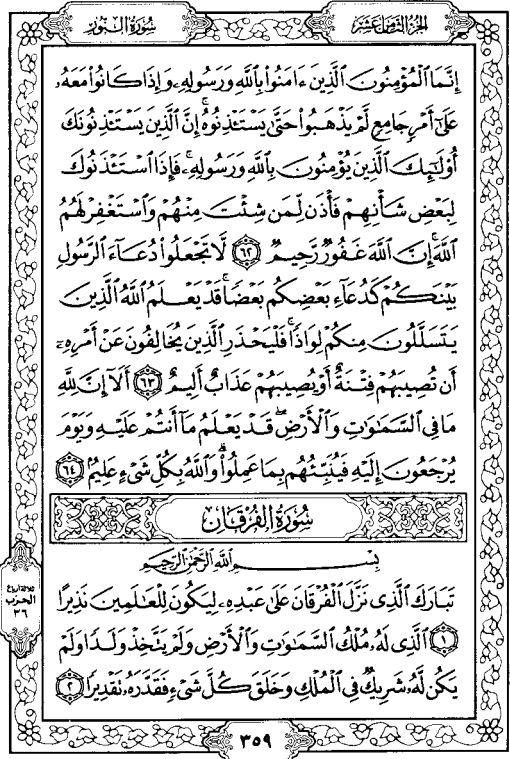 سُورَةُ النُّورِ
الجُزْءُ الثَّامِنَ عَشَرَ
إِنَّمَا ٱلْمُؤْمِنُونَ ٱلَّذِينَ ءَامَنُوا۟ بِٱللَّهِ وَرَسُولِهِۦ وَإِذَا كَانُوا۟ مَعَهُۥ
عَلَىٰٓ أَمْرٍ جَامِعٍ لَّمْ يَذْهَبُوا۟ حَتَّىٰ يَسْتَـْٔذِنُوهُ ۚ إِنَّ ٱلَّذِينَ يَسْتَـْٔذِنُونَكَ
أُو۟لَـٰٓئِكَ ٱلَّذِينَ يُؤْمِنُونَ بِٱللَّهِ وَرَسُولِهِۦ ۚ فَإِذَا ٱسْتَـْٔذَنُوكَ
لِبَعْضِ شَأْنِهِمْ فَأْذَن لِّمَن شِئْتَ مِنْهُمْ وَٱسْتَغْفِرْ لَهُمُ
ٱللَّهَ ۚ إِنَّ ٱللَّهَ غَفُورٌ رَّحِيمٌ ٦٢ لَّا تَجْعَلُوا۟ دُعَآءَ ٱلرَّسُولِ
بَيْنَكُمْ كَدُعَآءِ بَعْضِكُم بَعْضًا ۚ قَدْ يَعْلَمُ ٱللَّهُ ٱلَّذِينَ
يَتَسَلَّلُونَ مِنكُمْ لِوَاذًا ۚ فَلْيَحْذَرِ ٱلَّذِينَ يُخَالِفُونَ عَنْ أَمْرِهِۦٓ
أَن تُصِيبَهُمْ فِتْنَةٌ أَوْ يُصِيبَهُمْ عَذَابٌ أَلِيمٌ ٦٣ أَلَآ إِنَّ لِلَّهِ
مَا فِى ٱلسَّمَـٰوَٰتِ وَٱلْأَرْضِ ۖ قَدْ يَعْلَمُ مَآ أَنتُمْ عَلَيْهِ وَيَوْمَ
يُرْجَعُونَ إِلَيْهِ فَيُنَبِّئُهُم بِمَا عَمِلُوا۟ ۗ وَٱللَّهُ بِكُلِّ شَىْءٍ عَلِيمٌۢ ٦٤
سُورَةُ الْفُرْقَانِ
بِسْمِ ٱللَّهِ ٱلرَّحْمَـٰنِ ٱلرَّحِيمِ
تَبَارَكَ ٱلَّذِى نَزَّلَ ٱلْفُرْقَانَ عَلَىٰ عَبْدِهِۦ لِيَكُونَ لِلْعَـٰلَمِينَ نَذِيرًا
١ ٱلَّذِى لَهُۥ مُلْكُ ٱلسَّمَـٰوَٰتِ وَٱلْأَرْضِ وَلَمْ يَتَّخِذْ وَلَدًا وَلَمْ
يَكُن لَّهُۥ شَرِيكٌ فِى ٱلْمُلْكِ وَخَلَقَ كُلَّ شَىْءٍ فَقَدَّرَهُۥ تَقْدِيرًا ٢
ثلاثة أرباع
الحزب
٣٦
٣٥٩